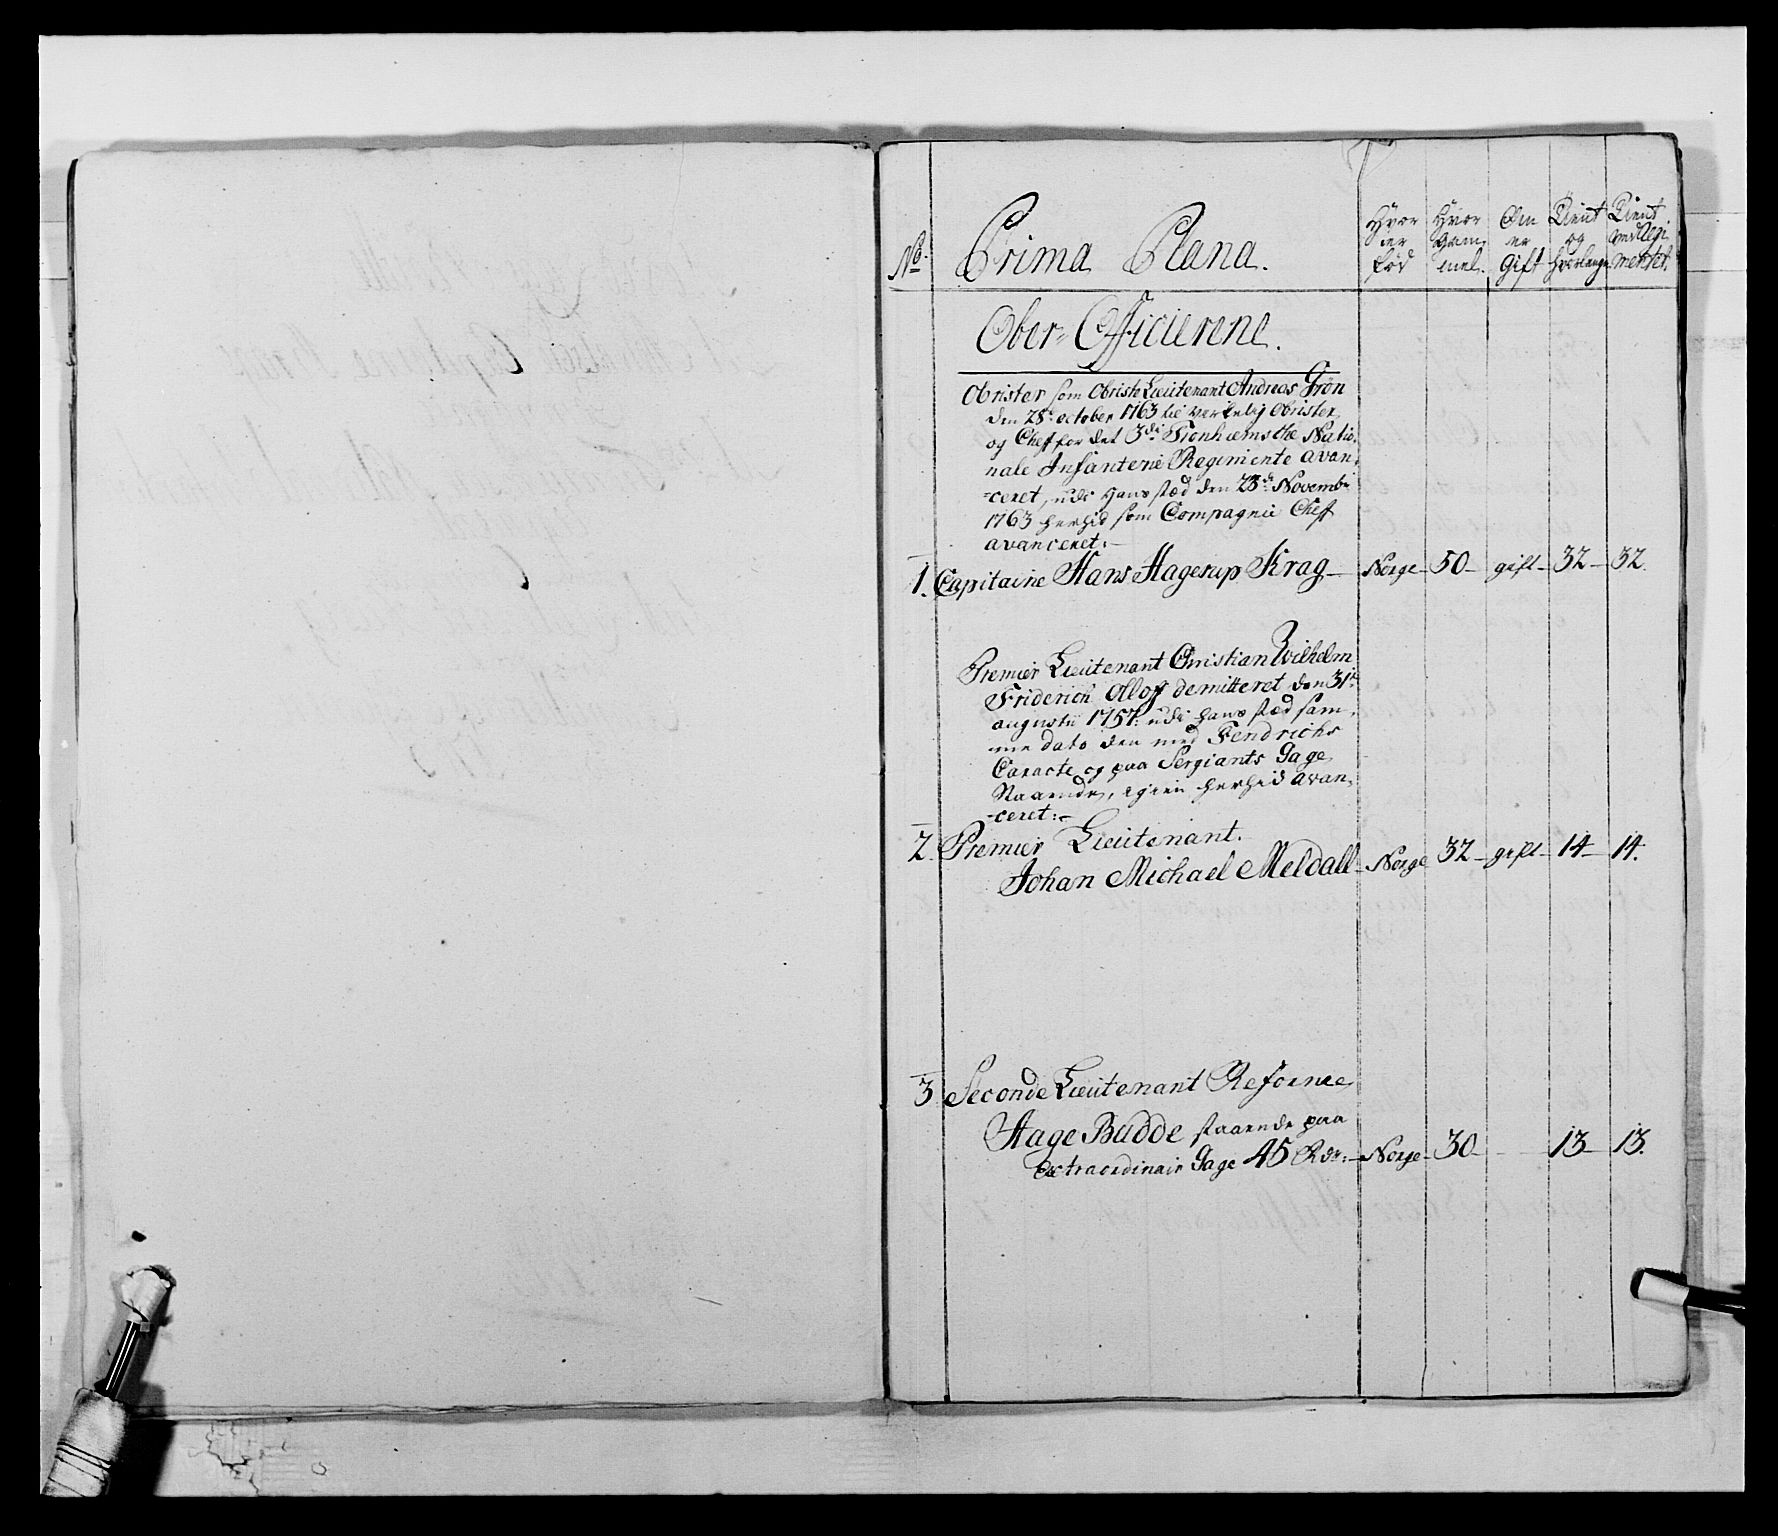 No. Prima Plana. Hvor er Fød Hvor Gam mel. Om er Gift Tient og hvorlænge Tient ved Regi mentet.
Ober-Officierene.
Obrister som Obriste Lieutenant Andreas Grön
den 28de october 1763 til verkelig Obrister
og Cheff for det 3die Tronhiemske Natio-
nale Infanterie Regimente avan-
ceret, udi Hans stæd den 23de Novembr
1763 herhid som Compagnie Cheff
avanceret:-
1. Capitaine Hans Hagerup Krag - Norge - 50 - gift - 32 - 32.
Premier Lieutenant Christian Wilhelm
Friderich Olloff demitteret den 31te
augustii 1757: udi hans stæd sam-
me dato den med Fendrichs
Caracte og paa Sergiants Gage
Staaende, igien herhid avan-
ceret:-
2. Premier Lieutenant.
Johan Michael Meldall - Norge 32 - gift - 14 - 14.
3 Seconde Lieutenant Reforme
Hage Budde staaende paa
Extraordinair Gage 45 Rdr: - Norge - 30 - - 13 - 13.